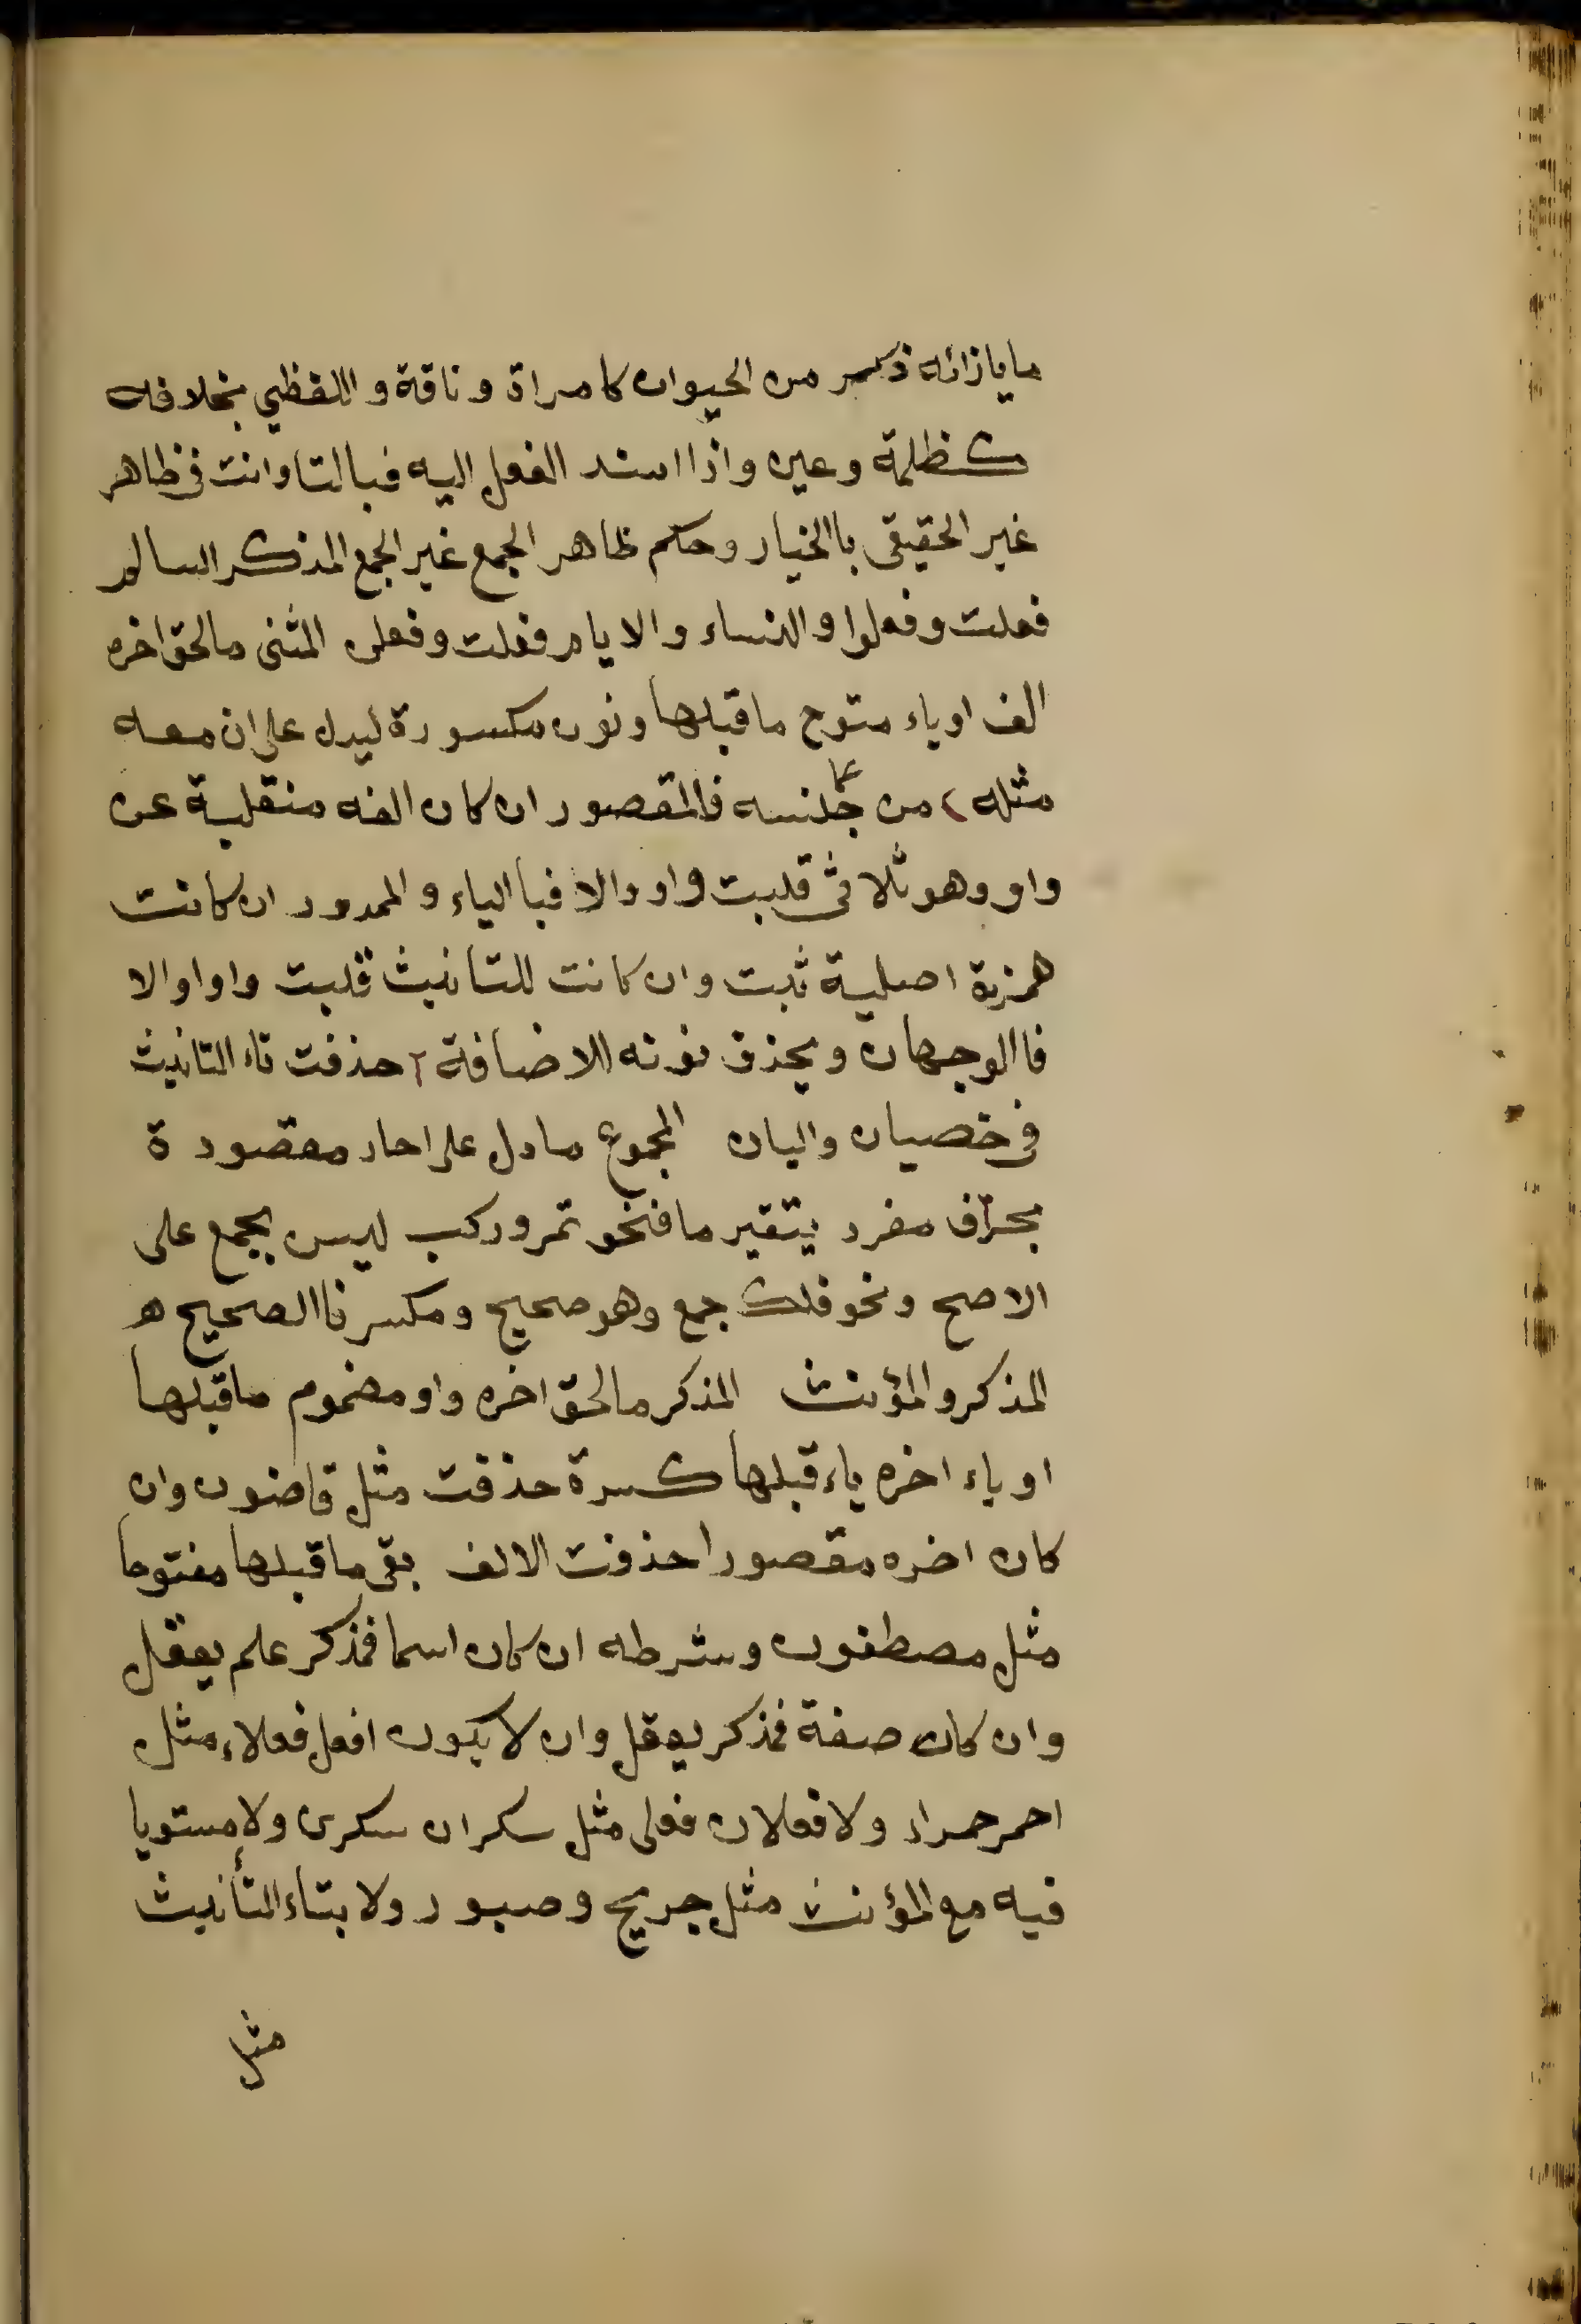 مابازائه ذكر من الحيوان كامراة وناقة واللفظي بخلافه
كظلمة وعين واذا اسند الفعل اليه فباالتا وانت في ظاهر
غير الحقيقي باالخيار وحكم ظاهر الجمع غير الجمع المذكر السالم
فعلت وفعلوا والنساء والايام فعلت وفعلن المثنى مالحق اخره
الف اوياء متوح ماقبلها ونون مكسورة ليدل على ان معه
مثله من جنسه فالمقصور ان كان الفه منقلبة عن
واو وهو ثلاثي قلبت واو والا فباالياء والممدود ان كانت
همزة اصلية ثبت وان كانت للتانيث قلبت واوا والا
فاالوجهان ويحذف نونه الاضافة حذفت تاء التانيث
في خصيان واليان المجموع مادل على احاد مقصودة
بحرف مفرد بتغير ما فنحو تمر وركب ليس بجمع على
الاصح ونحو فلك جمع وهو صحيح ومكسر فاالصحيح ه
المذكر والمؤنث المذكر مالحق اخره واو مضموم ماقبلها
اوياء اخره ياء قبلها كسرة حذفت مثل قاضون وان
كان اخره مقصورا حذفت الالف بقى ماقبلها مفتوحا
مثل مصطفون وشرطه ان كان اسما فمذكر علم يعقل
وان كان صفة فمذكر يعقل وان لايكون افعل فعلاء مثل
احمر حمراء ولا فعلان فعلى مثل سكران سكرى ولا مستويا
فيه مع المؤنث مثل جريح وصبور ولا بتاء التأنيث
مثل